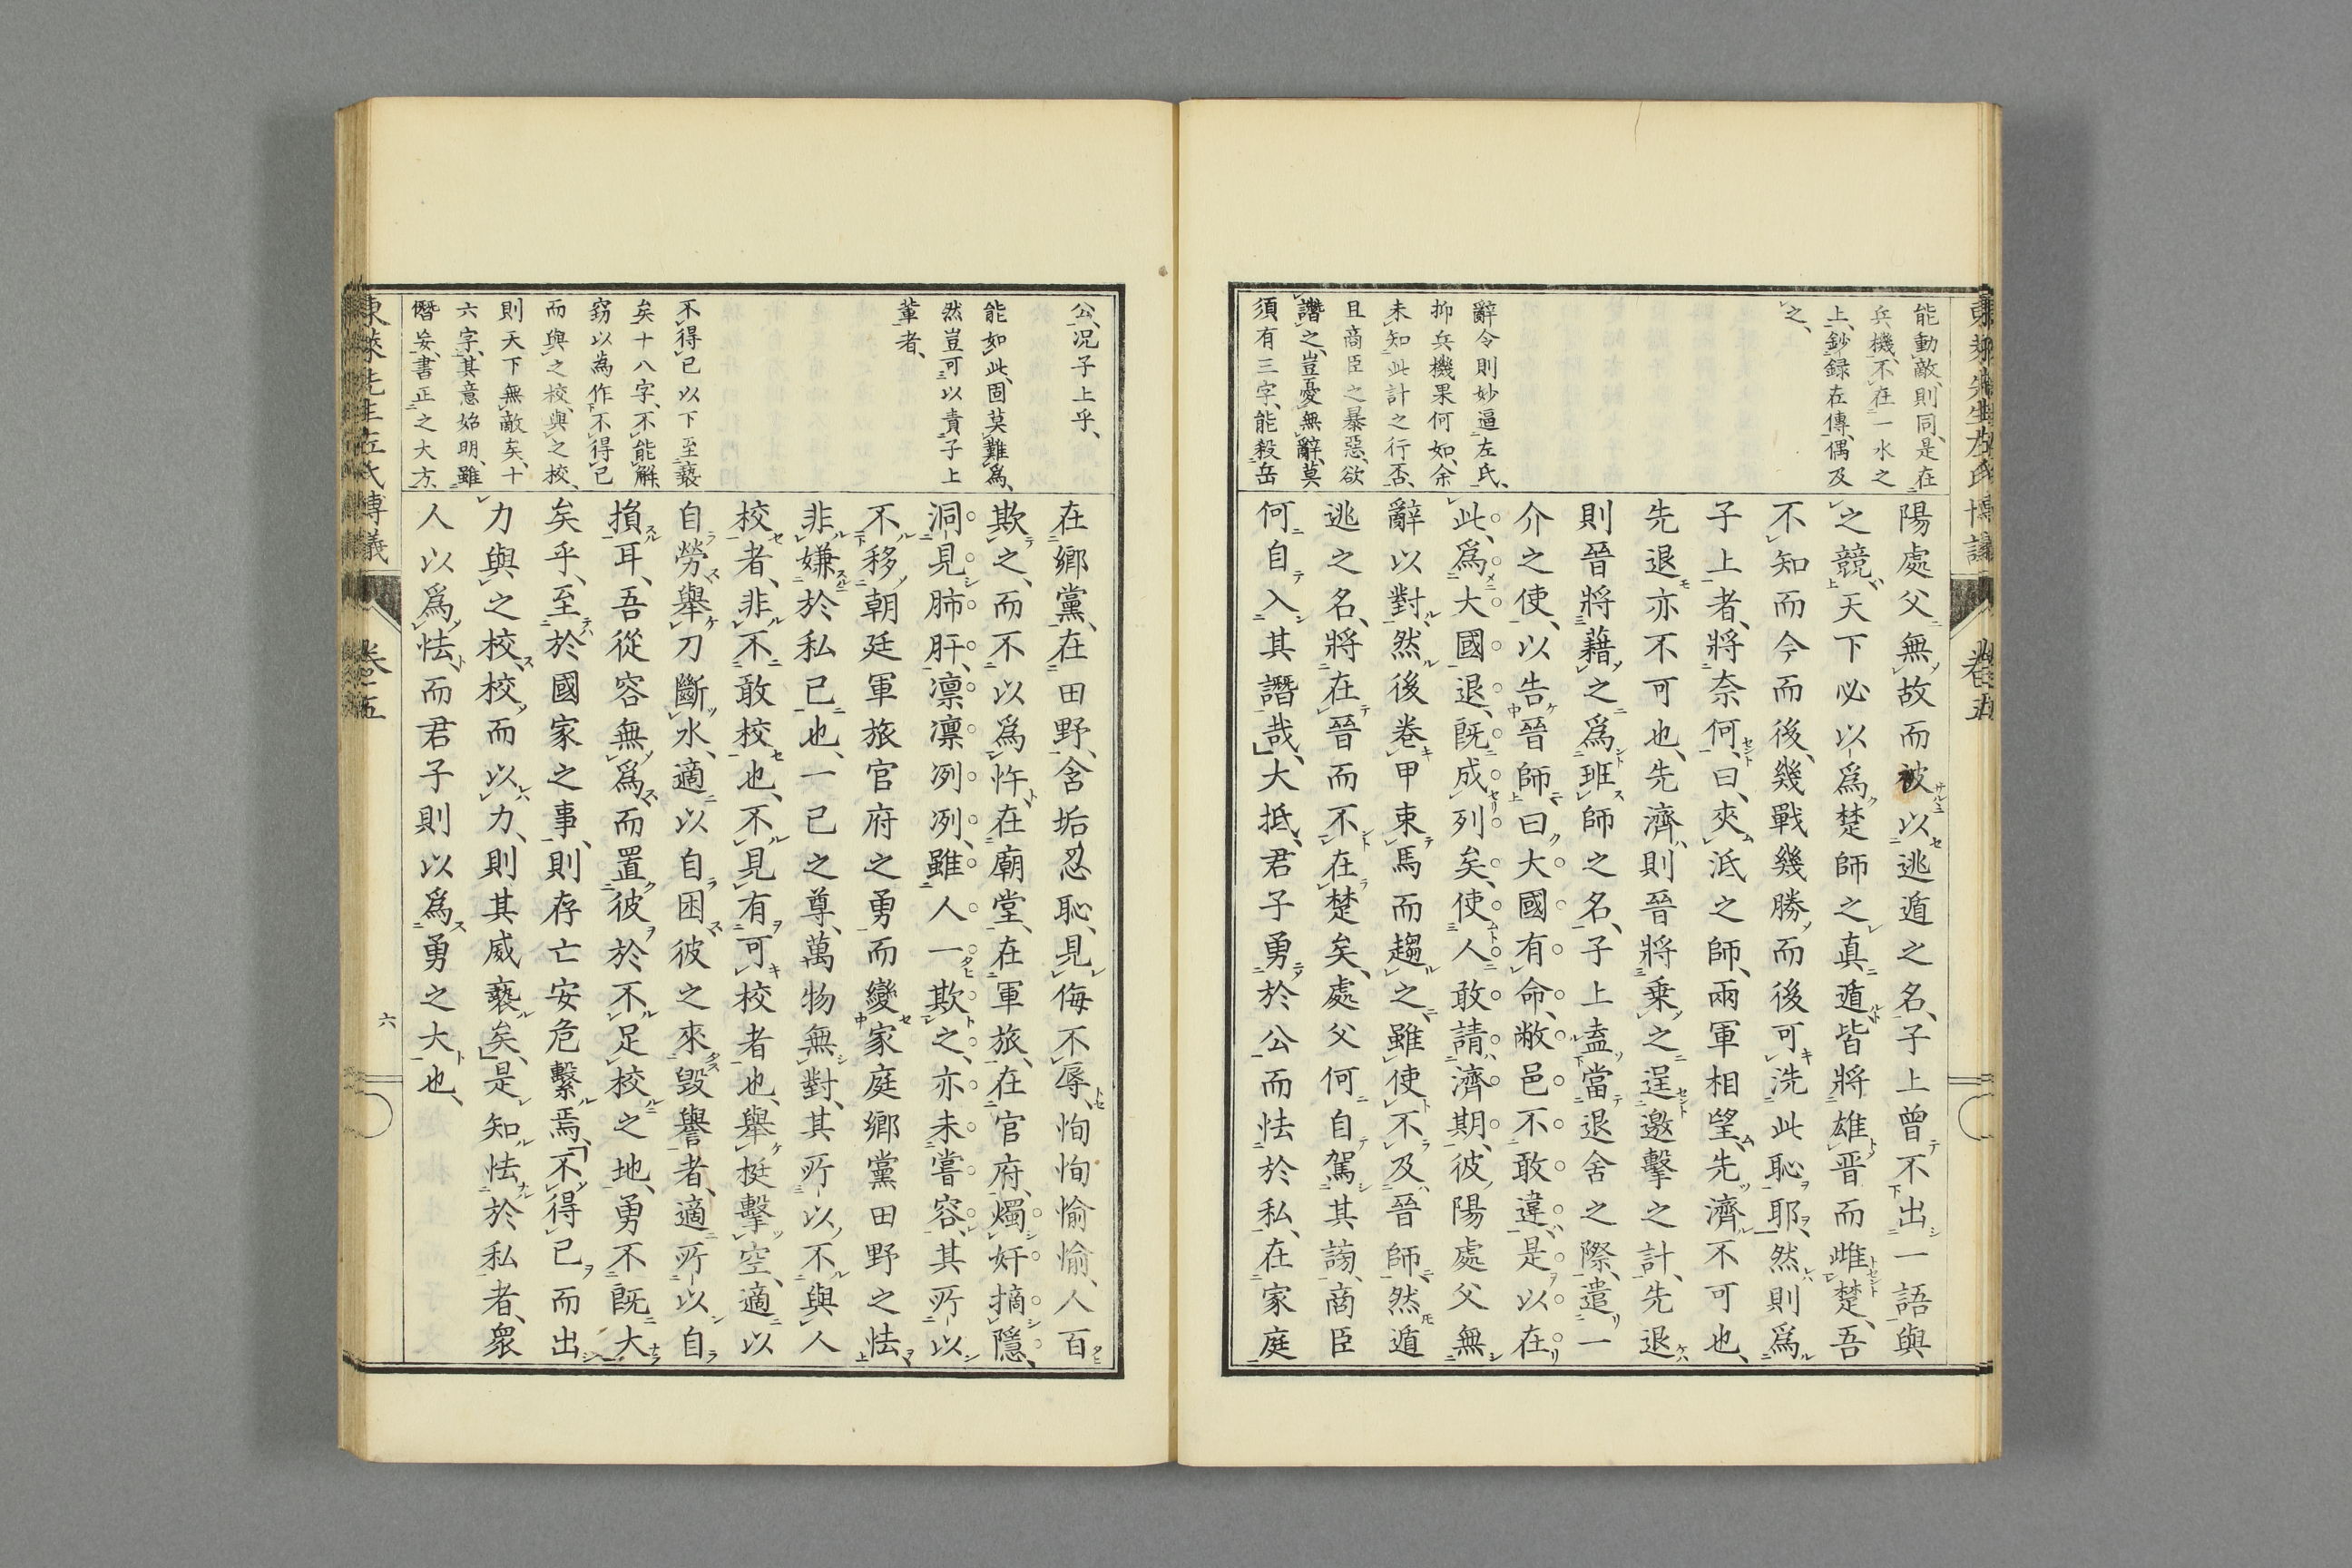 東萊先生左氏博議
卷五
能動敵、則同、是在
兵機、不在一水之
上、鈔録在傳、偶及
之、
辭令則妙逼左氏、
抑兵機果何如、余
未知此計之行否、
且商臣之暴惡、欲
譖之、豈憂無辭、莫
須有三字、能殺岳
陽處父無故而被以逃遁之名、子上曾不出一語與
之競、天下必以爲楚師之真遁、皆將雄晋而雌楚、吾
不知而今而後、幾戰幾勝、而後可洗此恥耶、然則爲
子上者、將奈何、曰、夾泜之師、兩軍相望、先濟不可也、
先退亦不可也、先濟、則晉將乗之、逞邀擊之計、先退
則晉將藉之爲班師之名、子上盍當退舍之際、遣一
介之使、以告晉師曰、大國有命、敝邑不敢違、是以在
此、爲大國退、既成列矣、使人敢請濟期、彼陽處父無
辭以對、然後卷甲束馬而趨之、雖使不及晉師、然遁
逃之名、將在晉而不在楚矣、處父何自駕其謗、商臣
何自入其譖哉、大抵、君子勇於公而怯於私、在家庭
公、况子上乎、
能如此、固莫難爲、
然豈可以責子上
輩者、
不得已以下至褻
矣十八字、不能解、
窃以為作不得已
而與之校、與之校、
則天下無敵矣、十
六字、其意始明、雖
僭妄、書正之大方、
在鄉黨、在田野、含垢忍恥、見侮不辱、恂恂愉愉、人百
欺之、而不以爲忤、在廟堂、在軍旅、在官府、燭奸摘隱、
洞見肺肝、凛凛冽冽、雖人一欺之、亦未嘗容、其所以
不移朝廷軍旅官府之勇、而變家庭鄉黨田野之怯、
非嫌於私己也、一己之尊、萬物無對、其所以不與人
校者、非不敢校也、不見有可校者也、舉梃擊空、適以
自勞、舉刀斷水、適以自困、彼之來毀譽者、適所以自
損耳、吾從容無爲、而置彼於不足校之地、勇不既大
矣乎、至於國家之事、則存亡安危繫焉、不得已而出
力與之校、校而以力、則其威褻矣、是知怯於私者、衆
人以爲怯、而君子則以爲勇之大也、
東萊先生左氏博議
卷五
六